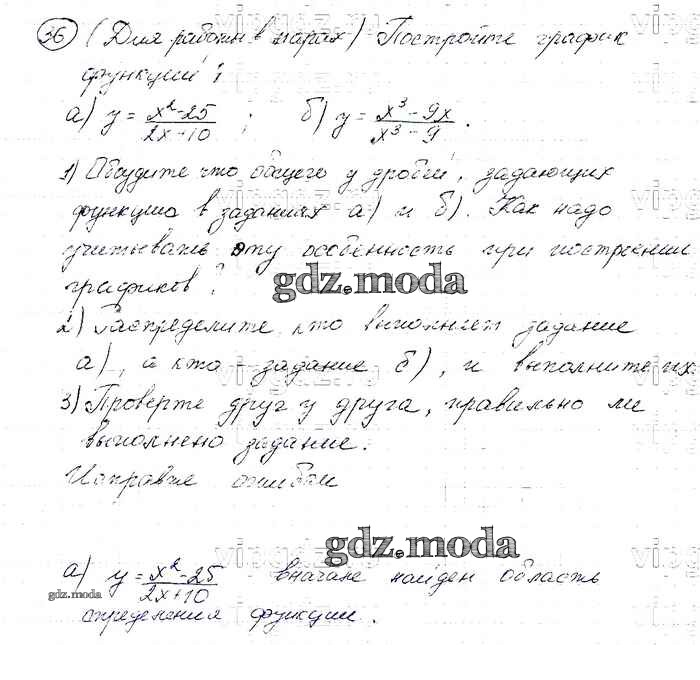 36 (Для работы в парах) Постройте график
функции:
а) y = x²-25 / 2x+10 ; б) y = x³-9x / x³-9 .
1) Обсудите что общего у дробей, задающих
функцию в заданиях а) и б). Как надо
учитывать эту особенность при построении
графиков?
gdz.moda
2) Распределите, кто выполняет задание
а), а кто - задание б), и выполните их.
3) Проверте друг у друга, правильно ли
выполнено задание.
Исправте ошибки
gdz.moda
а) y = x²-25 / 2x+10 вначале найдем область
gdz.moda
определения функции.